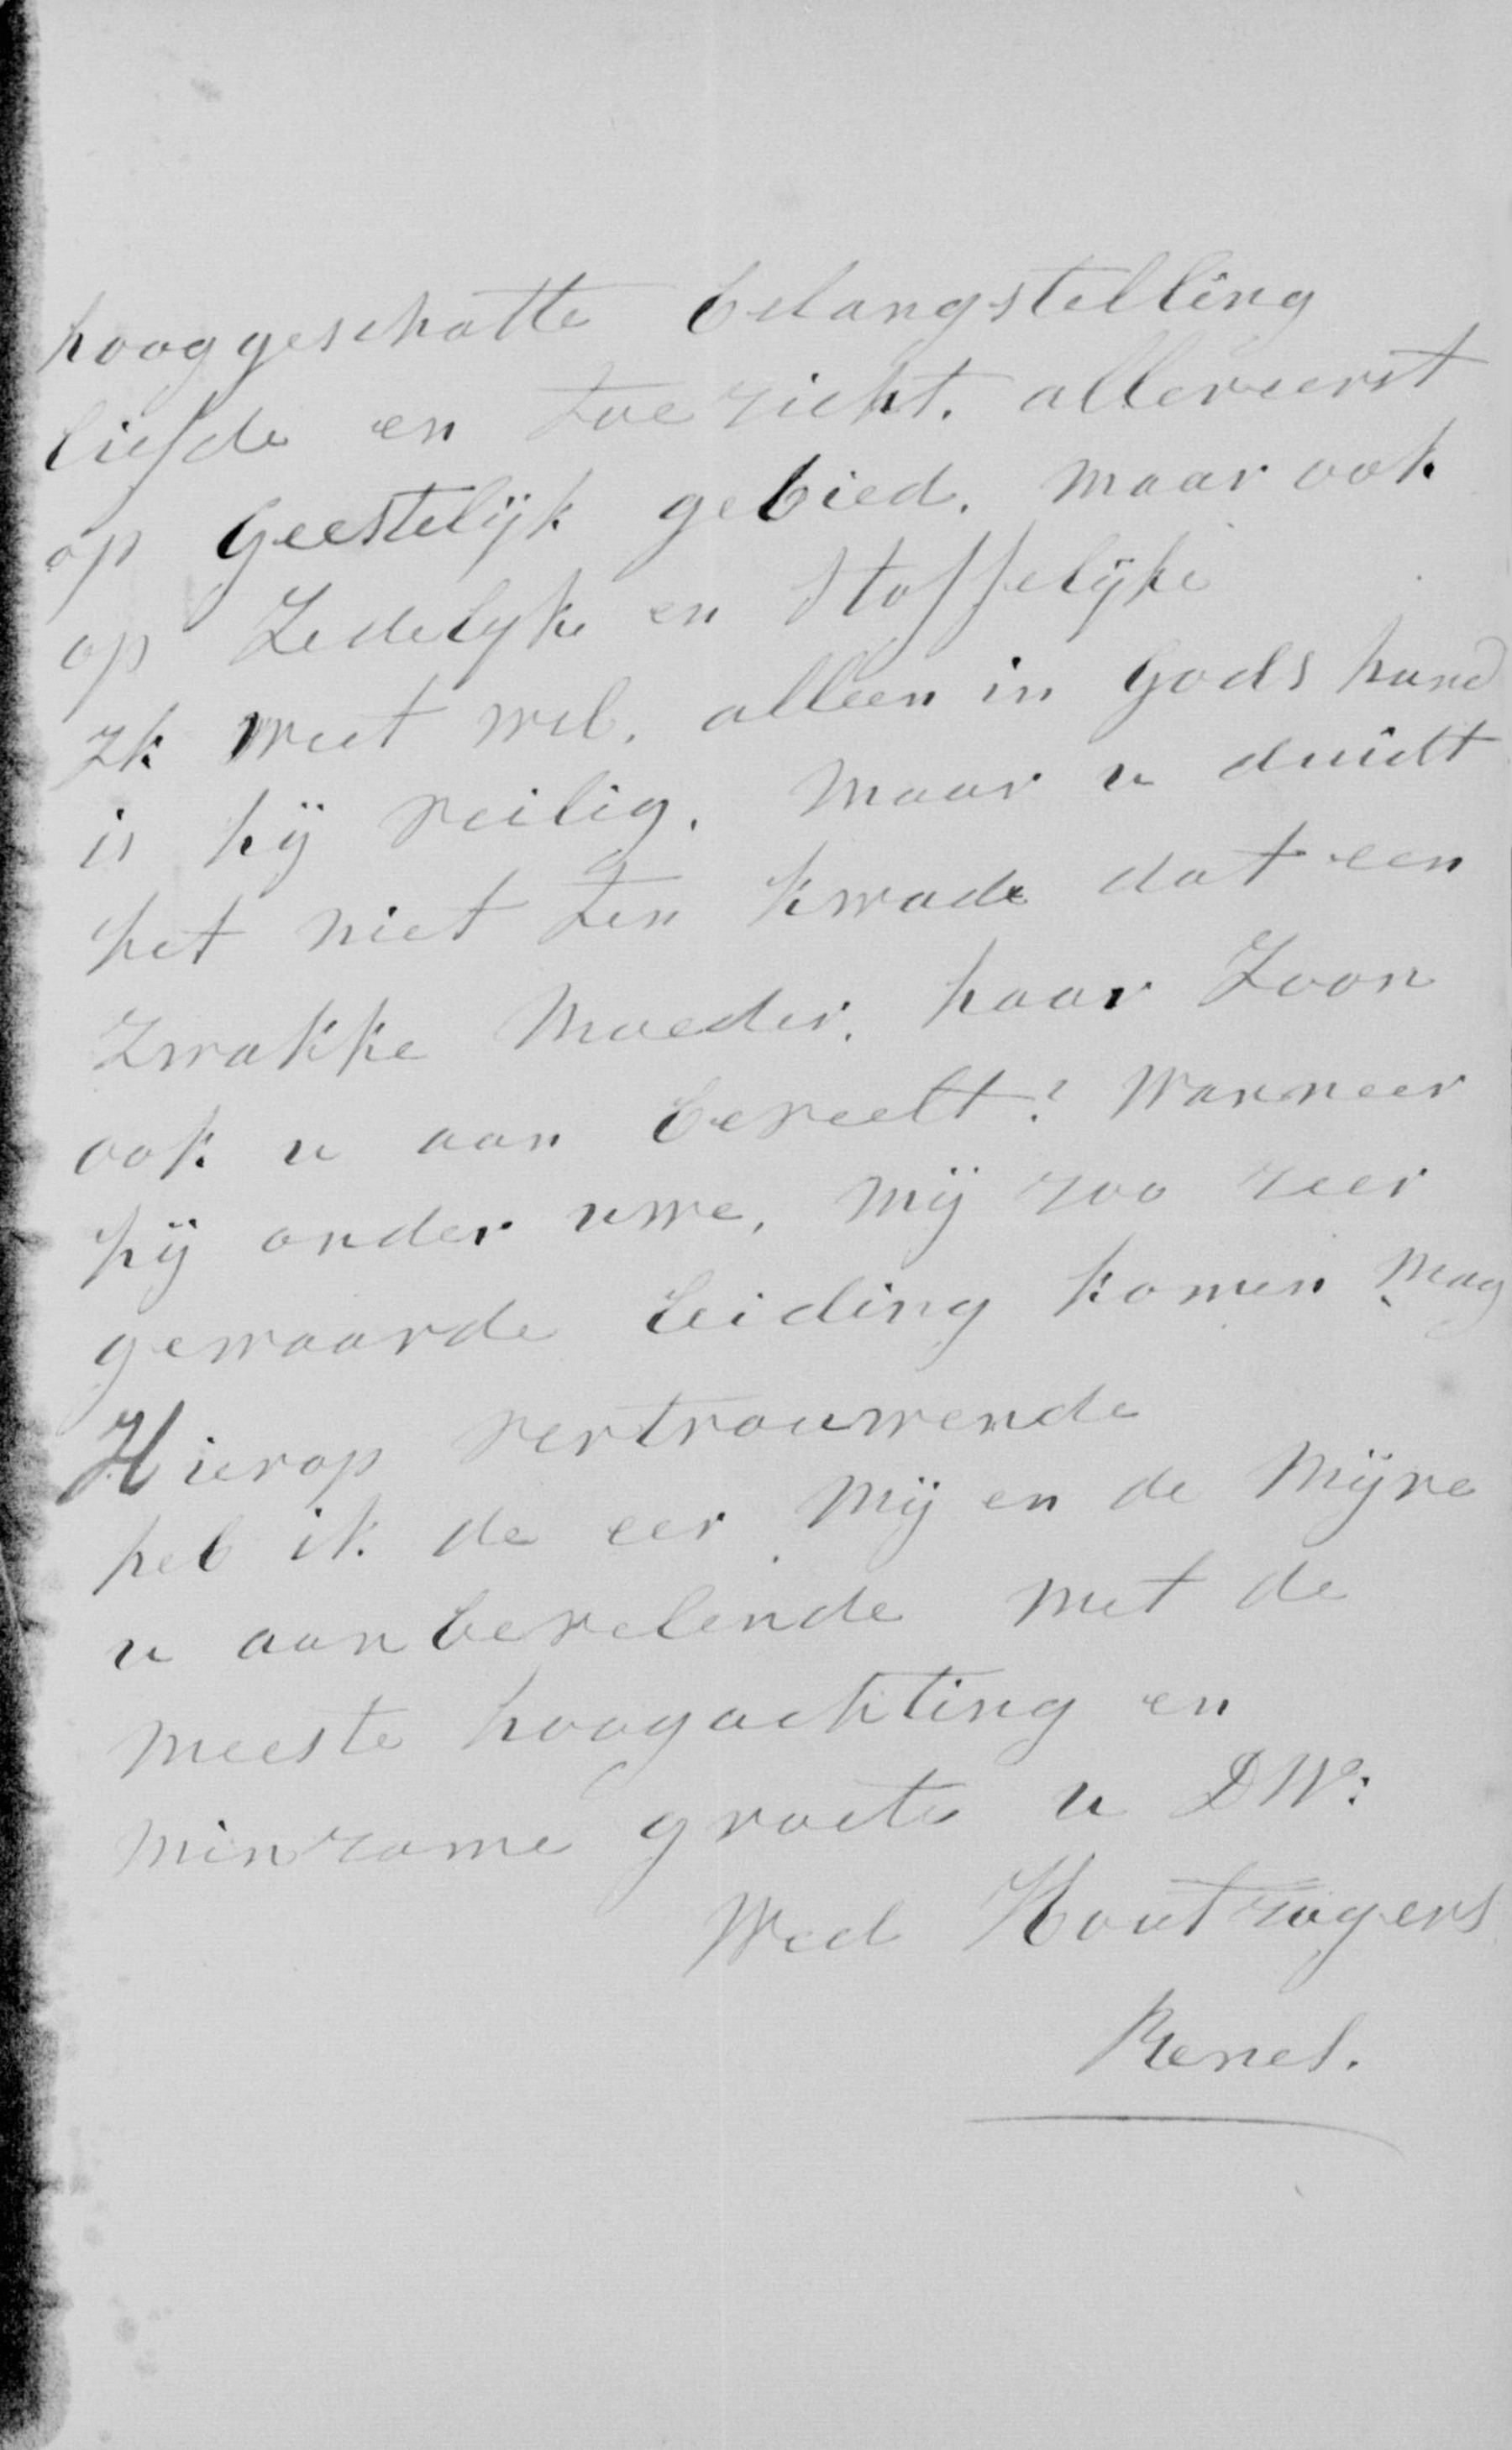 hooggeschatte belangstelling
liefde en toezicht. allereerst
op Geestelijk gebied. maar ook
op Zedelyke en Stoffelijke
Ik weet wel. alleen in Gods hand
is hij veilig. Maar u duidt
het niet ten kwade dat een
Zwakke Moeder. haar Zoon
ook u aan beveelt? Wanneer
hij onder uwe, mij zoo zeer
gewaarde Leiding komen mag
Hierop vertrouwende
heb ik de eer mij en de Mijne
u aanbevelende met de
meeste hoogachting en
minzame groete u DWe:
Wed Houtzagers